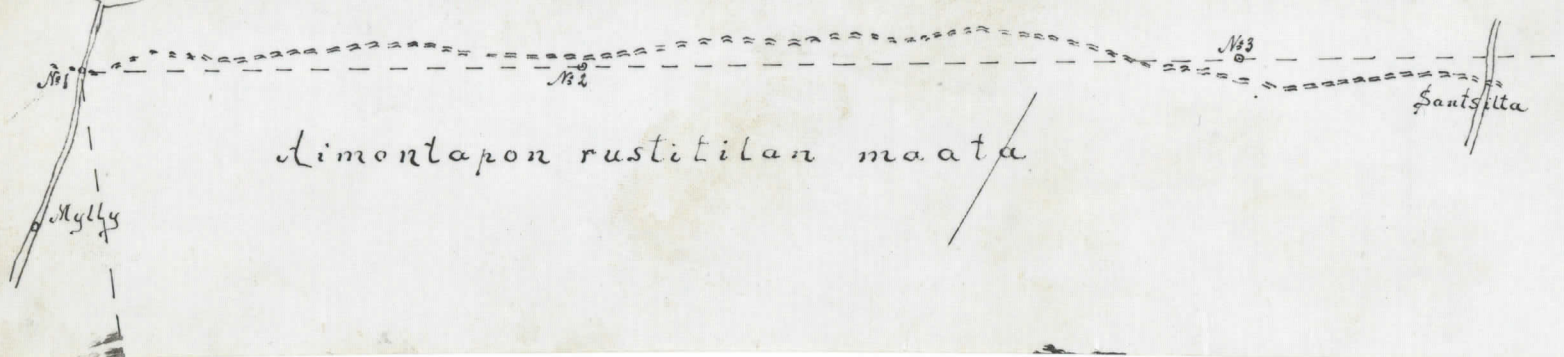 №3
№1
№2
Santsilta
Aimontapon rustitilan maata
Mylly